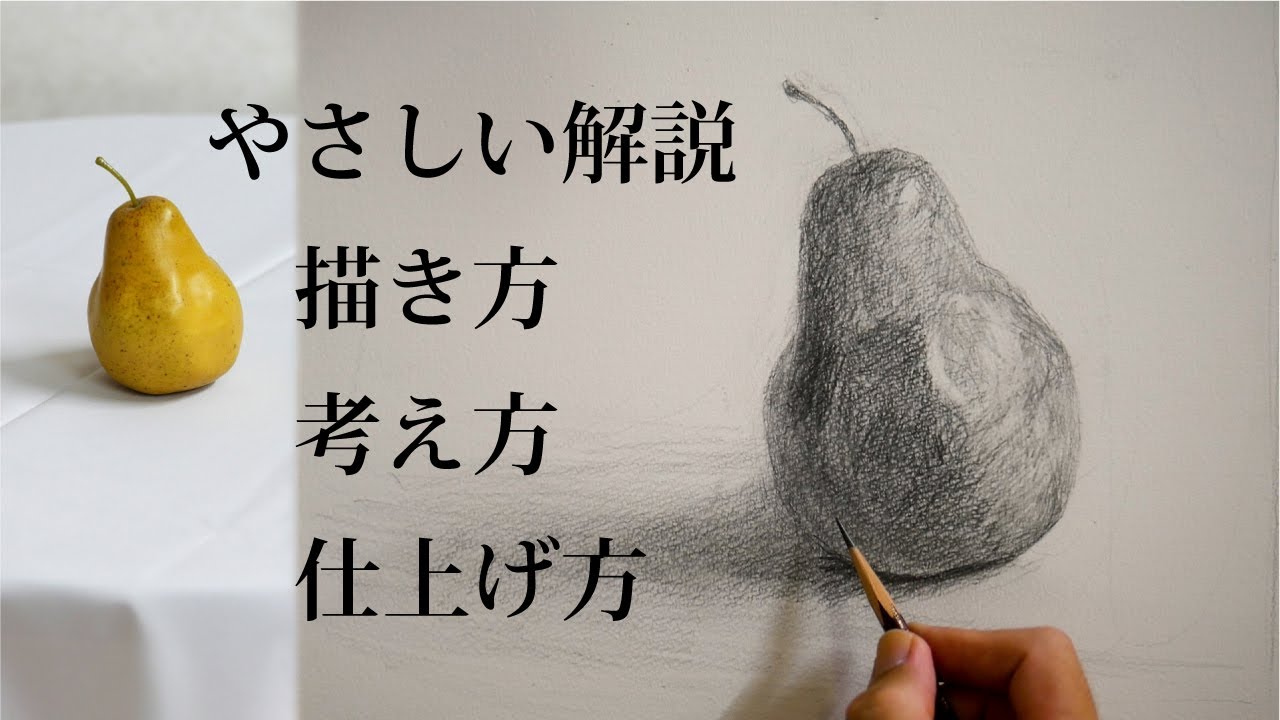 やさしい解説
描き方
考え方
仕上げ方